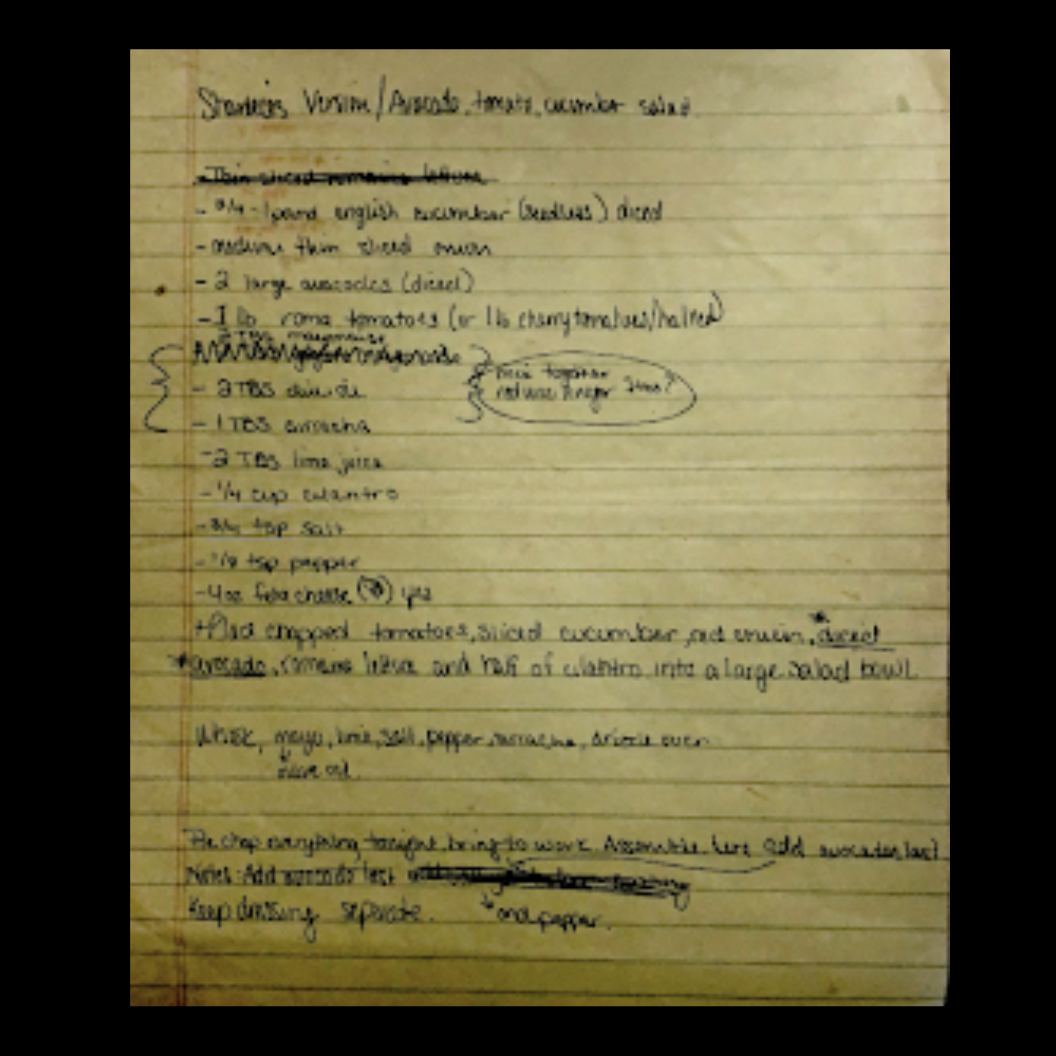 Version / Avocado, tomato, cucumber salad.
- Thin sliced romaine lettuce
- 3/4 - 1 pound english cucumber (seedless) diced
- medium thin sliced onion
- 2 large avocados (diced)
- 1 lb roma tomatoes (or 1 lb cherry tomatoes/halved)
2 TBS mayonnaise
- 2 TBS olive oil
together
longer
- 1 TBS sriracha
- 2 TBS lime juice
- 1/4 cup cilantro
- 3/4 tsp salt
- 1/8 tsp pepper
- 4oz feta cheese yes
chopped tomatoes, sliced cucumber, red onion, diced
avocado, romaine lettuce and half of cilantro into a large salad bowl.
Whisk, mayo, lime, salt, pepper, sriracha, drizzle over
olive oil.
chop everything tonight, bring to work. Assemble here add avocados last
Notes: Add avocado last
Keep dressing separate. and pepper.